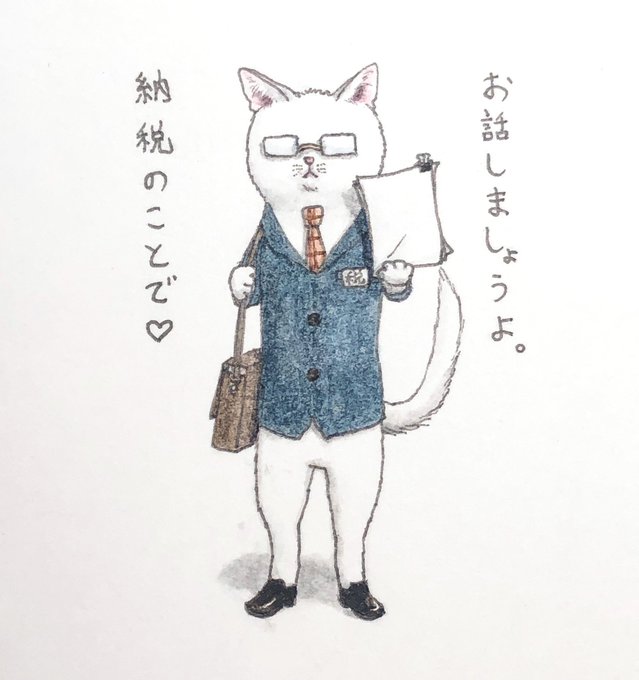 お話しましょうよ。
納税のことで♡
税